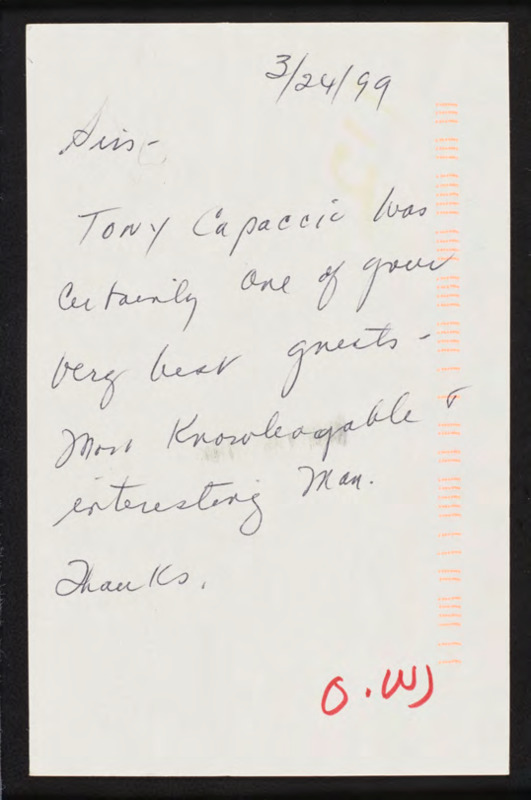 3/24/99
Sirs-
Tony Capaccio was
Certainly one of your
very best guests -
Most Knowleagable &
interesting Man.
Thanks.